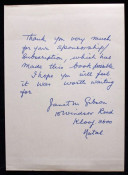 Thank you very much
for your sponsorship/
subscription, which has
made this book possible.
I hope you will feel
it was worth waiting
for
Janet M. Gibson
Road
Kloof. 3600
Natal